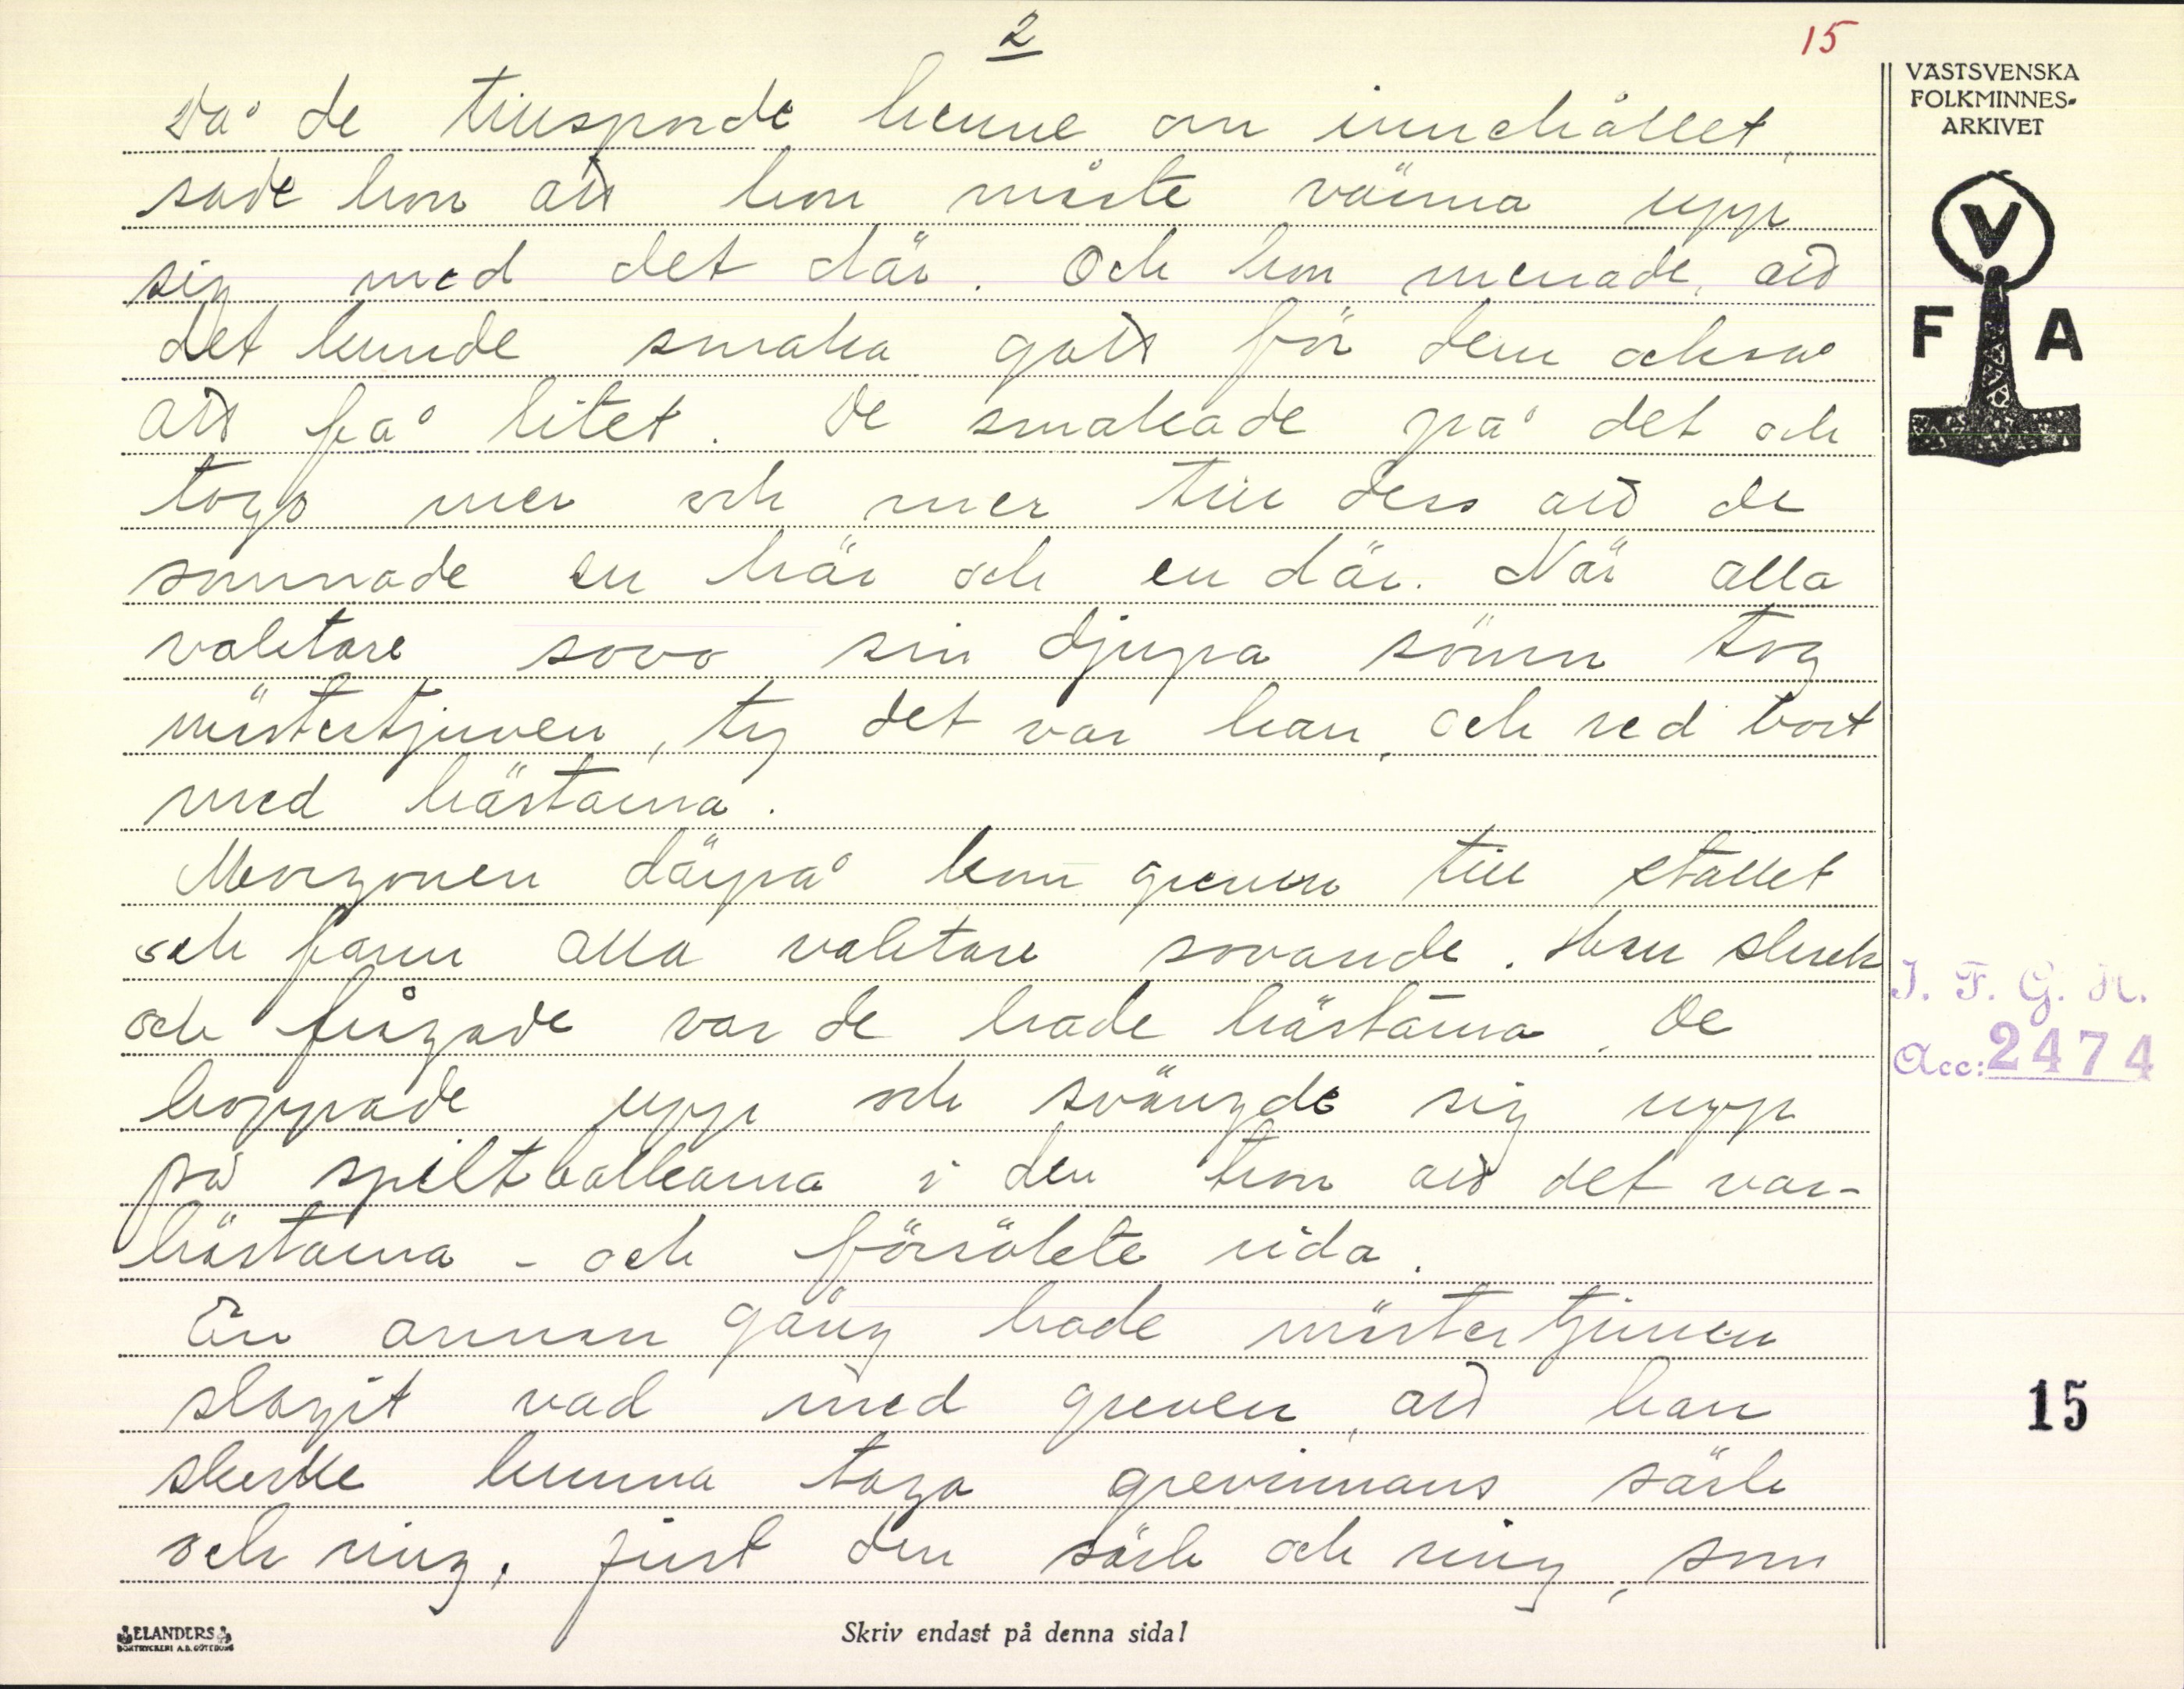 2
15
Då de tillsporde henne om innehållet,
sade hon att hon måste värma upp
sig med det där. Och hon menade, att
det kunde smaka gott för dem också
att få litet. De smakade på det och
togo mer och mer till dess att de
somnade en här och en där. När alla
vaktare sovo sin djupa sömn tog
mästertjuven, ty det var han, och red bort
med hästarna.
Morgonen därpå kom greven till stallet
och fann alla vaktare sovande. Han skrek
och frågade var de hade hästarna. De
hoppade upp och svängde sig upp
på spiltbalkarna i den tron att det var-
hästarna - och försökte rida.
En annan gång hade mästertjuven
slagit vad med greven, att han
skulle kunna taga grevinnans särk
och ring, just den särk och ring, som
VÄSTSVENSKA
FOLKMINNES-
ARKIVET
V
F A
I. F. G. H.
Acc: 2474
15
ELANDERS
BOKTRYCKERI A.B. GÖTEBORG
Skriv endast på denna sida!